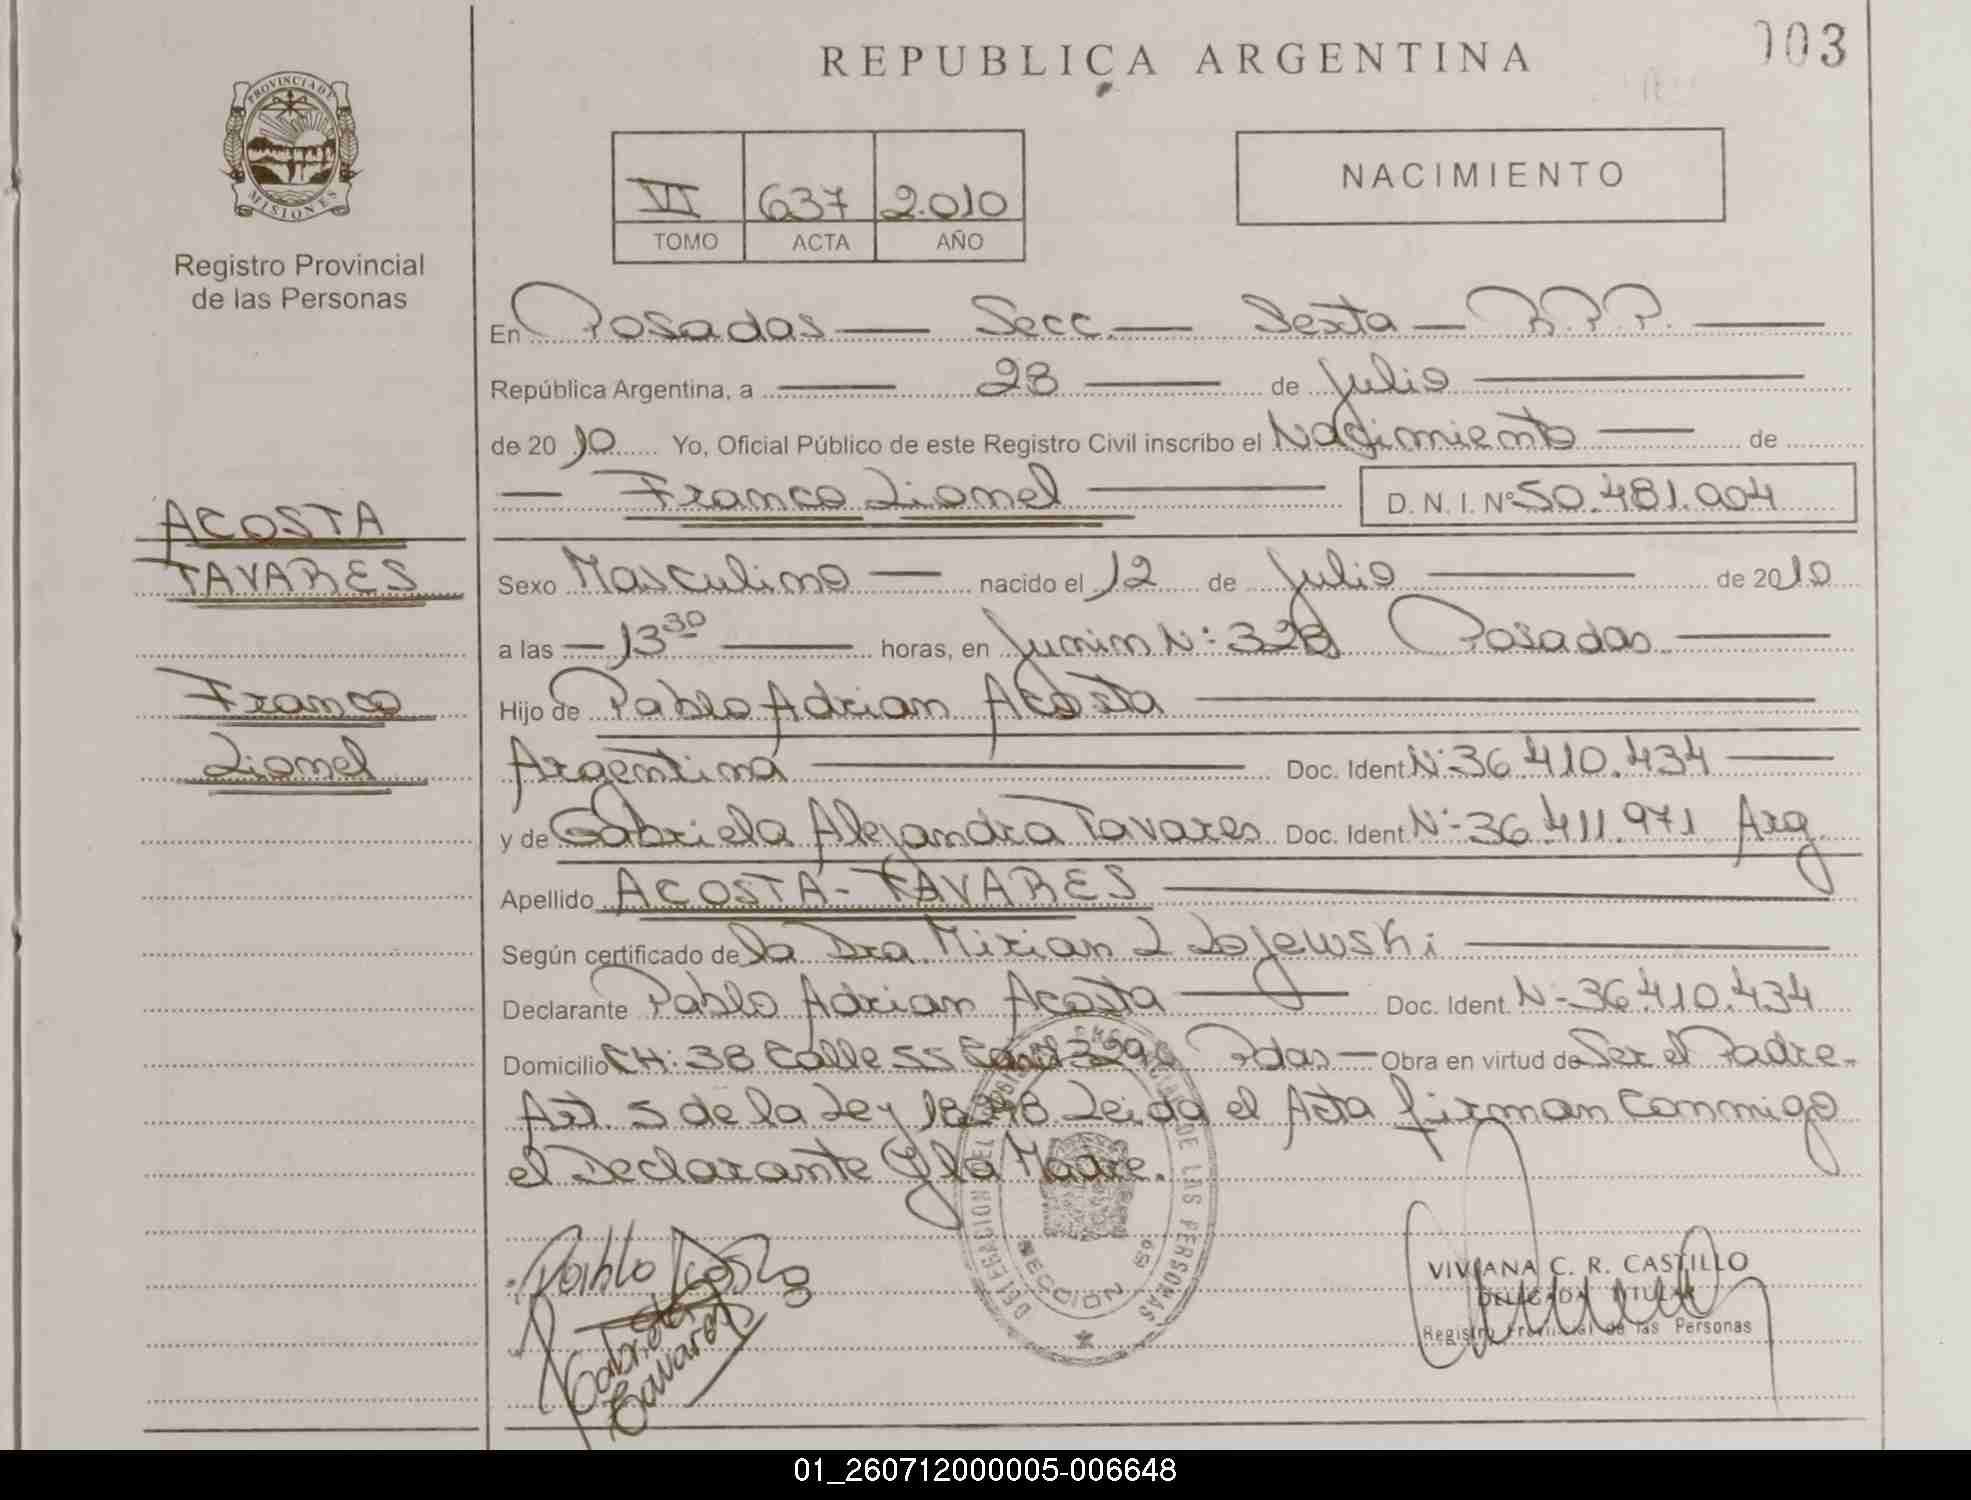 REPUBLICA ARGENTINA
103
PROVINCIA DE MISIONES
Registro Provincial
de las Personas
VI 637 2.010
TOMO ACTA AÑO
NACIMIENTO
En Posadas — Secc. — Sexta — R.P.P. —
República Argentina, a — 28 — de Julio —
de 2010 Yo, Oficial Público de este Registro Civil inscribo el Nacimiento — de
— Franco Lionel — D. N. I. Nº 50.481.004
ACOSTA
TAVARES
Franco
Lionel
Sexo Masculino — nacido el 12 de Julio — de 2010
a las — 13 30 — horas, en Junin N: 328 Posadas —
Hijo de Pablo Adrian Acosta —
Argentina — Doc. Ident. N: 36.410.434 —
y de Gabriela Alejandra Tavares Doc. Ident. N: 36.411.971 Arg.
Apellido ACOSTA - TAVARES —
Según certificado de la Dra. Mirian L Lojewski —
Declarante Pablo Adrian Acosta — Doc. Ident. N- 36.410.434
Domicilio CH: 38 Calle 55 Pdas — Obra en virtud de Ser el Padre -
Art. 5 de la Ley 18248 Leida el Acta firman Conmigo
el Declarante y la Madre.
Pablo Acosta
Gabriela
Tavares
DELEGACION DEL REGISTRO DE LAS PERSONAS
SECCION 6º
VIVIANA C. R. CASTILLO
DELEGADA TITULAR
Registro Provincial de las Personas
01_260712000005-006648